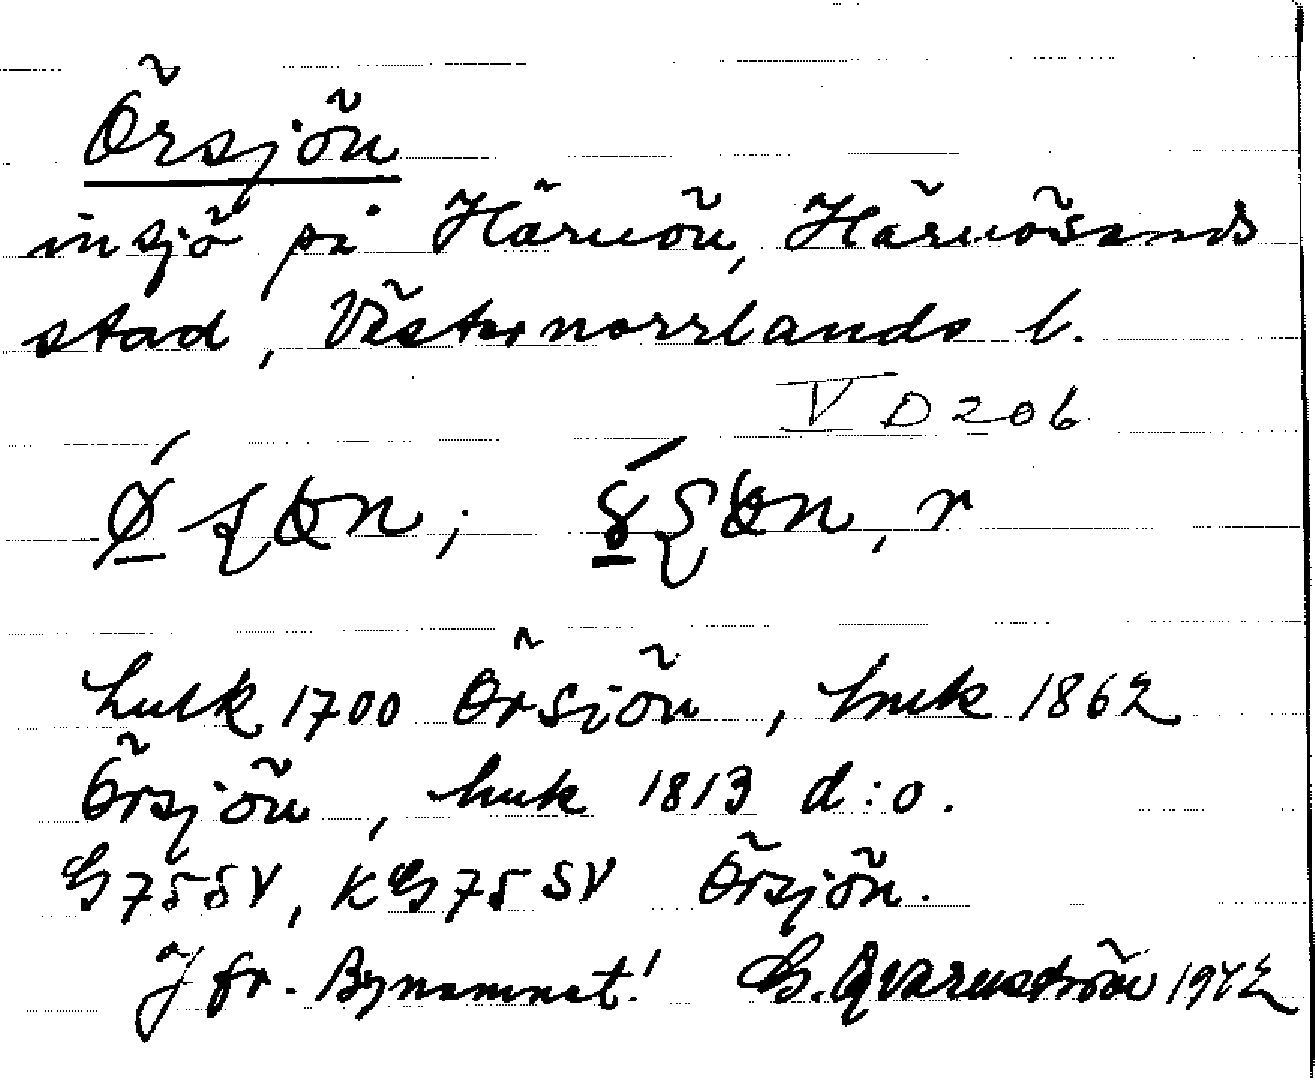 Örsjön
insjö på Härnön, Härnösands
stad, Västernorrlands l.
V D 206
lmk 1700 Örsjön, lmk 1862
Örsjön, lmk 1813 d:o.
G 75 SV, KG 75 SV Örsjön.
Jfr. Bynamnet! G. Qvarnström 1942